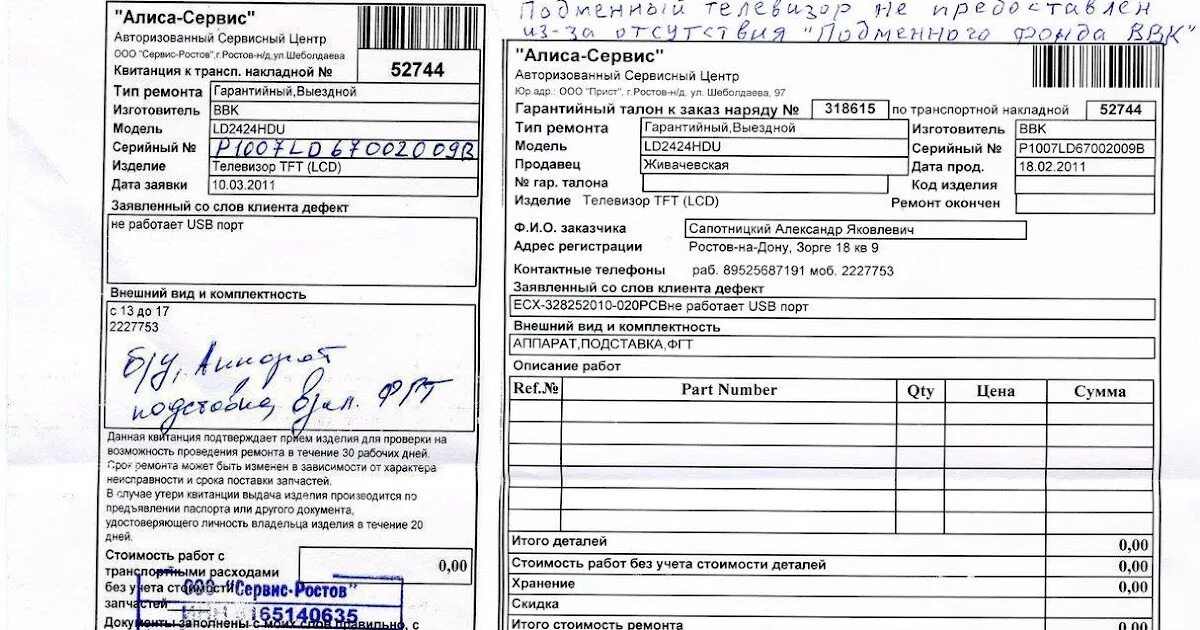 "Алиса-Сервис"
Авторизованный Сервисный Центр
ООО "Сервис-Ростов",г.Ростов-н/д,ул.Шеболдаева
Квитанция к трансп. накладной № 52744
Тип ремонта Гарантийный,Выездной
Изготовитель BBK
Модель LD2424HDU
Серийный № P1007LD67002009B
Изделие Телевизор TFT (LCD)
Дата заявки 10.03.2011
Заявленный со слов клиента дефект
не работает USB порт
Внешний вид и комплектность
с 13 до 17
2227753
б/у, Аппарат
подставка, ФГТ
Данная квитанция подтверждает прием изделия для проверки на
возможность проведения ремонта в течение 30 рабочих дней.
Срок ремонта может быть изменен в зависимости от характера
неисправности и срока поставки запчастей.
В случае утери квитанции выдача изделия производится по
предъявлении паспорта или другого документа,
удостоверяющего личность владельца изделия в течение 20
дней.
Стоимость работ с
транспортными расходами 0,00
без учета стоимости
запчастей
ООО "Сервис-Ростов"
ИНН 6165140635
Документы заполнены с моих слов правильно, с
Подменный телевизор не предоставлен
из-за отсутствия "Подменного фонда BBK"
"Алиса-Сервис"
Авторизованный Сервисный Центр
Юр.адр.: ООО "Прист", г.Ростов-н/д, ул. Шеболдаева, 97
Гарантийный талон к заказ наряду № 318615 по транспортной накладной 52744
Тип ремонта Гарантийный,Выездной Изготовитель BBK
Модель LD2424HDU Серийный № P1007LD67002009B
Продавец Живачевская Дата прод. 18.02.2011
№ гар. талона Код изделия
Изделие Телевизор TFT (LCD) Ремонт окончен
Ф.И.О. заказчика Сапотницкий Александр Яковлевич
Адрес регистрации Ростов-на-Дону, Зорге 18 кв 9
Контактные телефоны раб. 89525687191 моб. 2227753
Заявленный со слов клиента дефект
ECX-328252010-020PCBне работает USB порт
Внешний вид и комплектность
АППАРАТ,ПОДСТАВКА,ФГТ
Описание работ
Ref.№ Part Number Qty Цена Сумма
Итого деталей 0,00
Стоимость работ без учета стоимости деталей 0,00
Хранение 0,00
Скидка
Итого стоимость ремонта 0,00